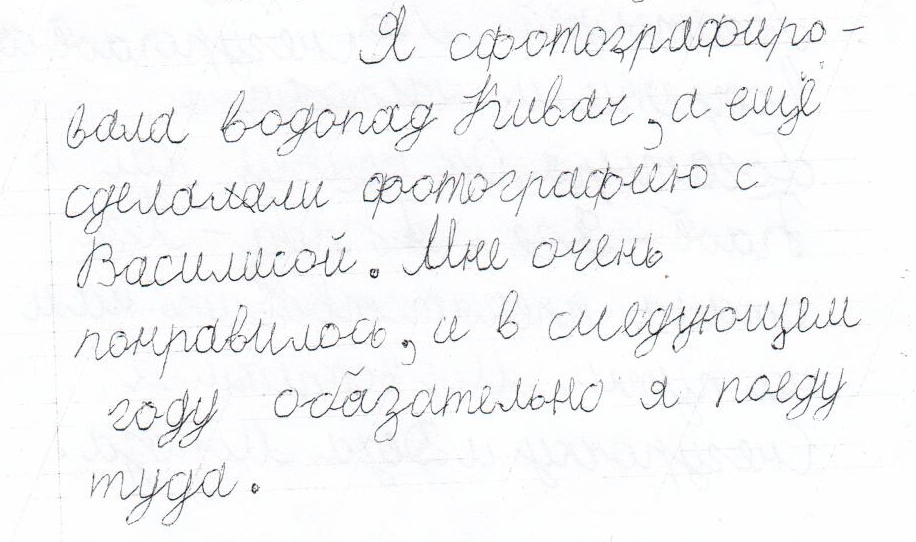 Я сфотографиро-
вала водопад Кивач, а ещё
сделахали фотографию с
Василисой. Мне очень
понравилось, и в следующем
году обазательно я поеду
туда.